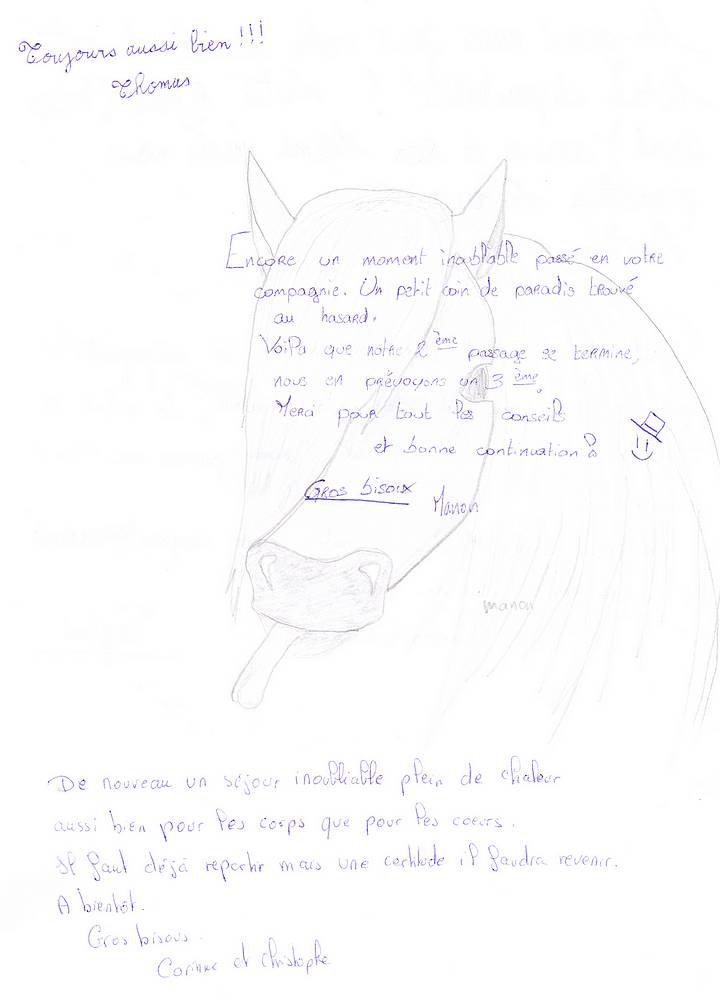 Toujours aussi bien !!!
Thomas
Encore un moment inoubliable passé en votre
compagnie. Un petit coin de paradis trouvé
au hasard.
Voila que notre 2ème passage se termine,
nous en prévoyons un 3ème.
Merci pour tout les conseils
et bonne continuation !
Gros bisoux Manon
manon
De nouveau un séjour inoubliable plein de chaleur
aussi bien pour les corps que pour les coeurs.
Il faut déjà repartir mais une certitude il faudra revenir.
A bientôt.
Gros bisous.
Corinne et christophe